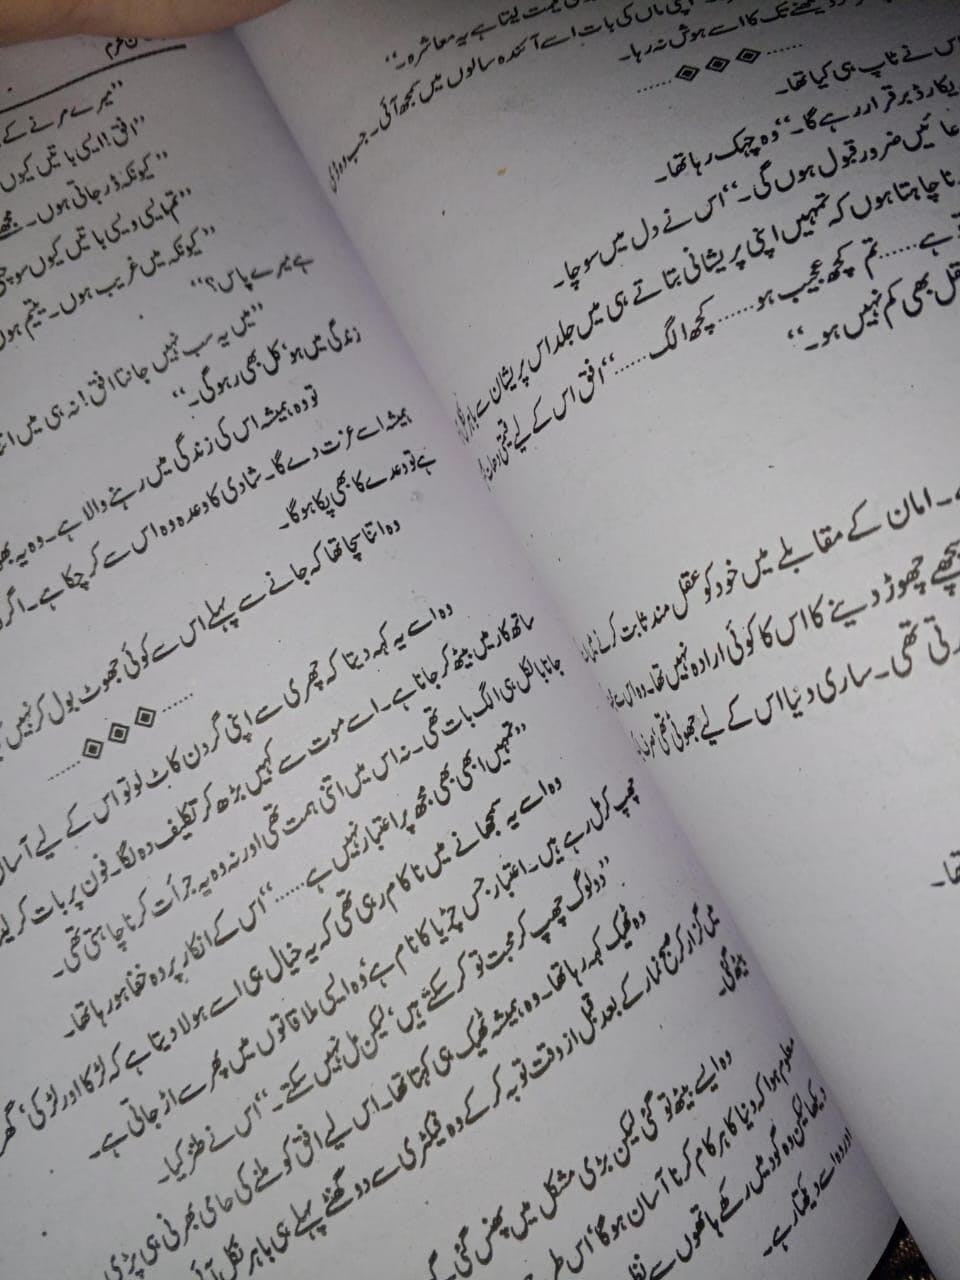 قیمت لیتا ہے یہ معاشرہ۔‘‘
اپنی ماں کی بات اسے آئندہ سالوں میں سمجھ آئی۔ جب
تک کا اسے ہوش نہ رہا۔
اس نے ٹاپ ہی کیا تھا۔
ریکارڈ برقرار رہے گا۔‘‘ وہ چہک رہا تھا۔
دعائیں ضرور قبول ہوں گی۔‘‘ اس نے دل میں سوچا۔
چاہتا ہوں کہ تمہیں اپنی پریشانی بتاتے ہی میں جلد اس پریشانی سے
ہے...... تم کچھ عجیب ہو...... کچھ الگ......‘‘ افق اس کے لیے قیمتی
بھی کم نہیں ہو۔‘‘
امان کے مقابلے میں خود کو عقل مند ثابت کرنے
پیچھے چھوڑ دینے کا اس کا کوئی ارادہ نہیں تھا۔ وہ اس سے
تھی۔ ساری دنیا اس کے لیے جھوٹی تھی
تھا۔
’’میرے مرنے کے
’’افق! ایسی باتیں کیوں
’’کیونکہ ڈر جاتی ہوں۔ مجھے
’’تم ایسی ویسی باتیں کیوں سوچتی
’’کیونکہ میں غریب ہوں۔ یتیم ہوں
ہے میرے پاس؟‘‘
’’میں یہ سب نہیں جانتا افق! نہ ہی میں
زندگی میں ہو، کل بھی رہو گی۔‘‘
تو وہ ہمیشہ اس کی زندگی میں رہنے والا ہے۔ وہ یہ
ہمیشہ اسے عزت دے گا۔ شادی کا وعدہ وہ اس سے کر چکا ہے۔ اگر
ہے تو وعدے کا بھی پکا ہوگا۔
وہ اتنا سچا تھا کہ جانے سے پہلے اس سے کوئی جھوٹ بول کر نہیں
وہ اسے یہ کہہ دیتا کہ چھری سے اپنی گردن کاٹ لو تو اس کے لیے آسان
ساتھ کار میں بیٹھ کر جانا ہے۔ اسے موت سے کہیں بڑھ کر تکلیف دہ لگا۔ فون پر بات کر لینا
جانا بالکل ہی الگ بات تھی۔ نہ اس میں اتنی ہمت تھی اور نہ وہ یہ جرأت کرنا چاہتی تھی۔
’’تمہیں ابھی بھی مجھ پر اعتبار نہیں ہے......‘‘ اس کے انکار پر وہ خفا ہو رہا تھا۔
وہ اسے یہ سمجھانے میں ناکام رہی تھی کہ یہ خیال ہی اسے ہولا دیتا ہے کہ لڑکا اور لڑکی، گھر
چھپ کر مل رہے ہیں۔ اعتبار جس چڑیا کا نام ہے، وہ ایسی ملاقاتوں میں پھر سے اڑ جاتی ہے۔
’’دو لوگ چھپ کر محبت تو کر سکتے ہیں، لیکن مل نہیں سکتے۔‘‘ اس نے طنز کیا۔
وہ ٹھیک کہہ رہا تھا۔ وہ ہمیشہ ٹھیک ہی کہتا تھا۔ اس لیے افق کو ملنے کی حامی بھرنی ہی پڑی
گزار کر صبح نماز کے بعد قبل از وقت توبہ کر کے وہ فیکٹری سے دو گھنٹے پہلے ہی باہر نکل
بیٹھ گئی۔
وہ ایسے بیٹھ تو گئی لیکن بڑی مشکل میں پھنس گئی
معلوم ہوا کہ دنیا کا ہر کام کرنا آسان ہوگا، اس طرح
دیکھا لیکن وہ گود میں رکھے ہاتھوں سے
اور وہ اسے دیکھتا رہے۔